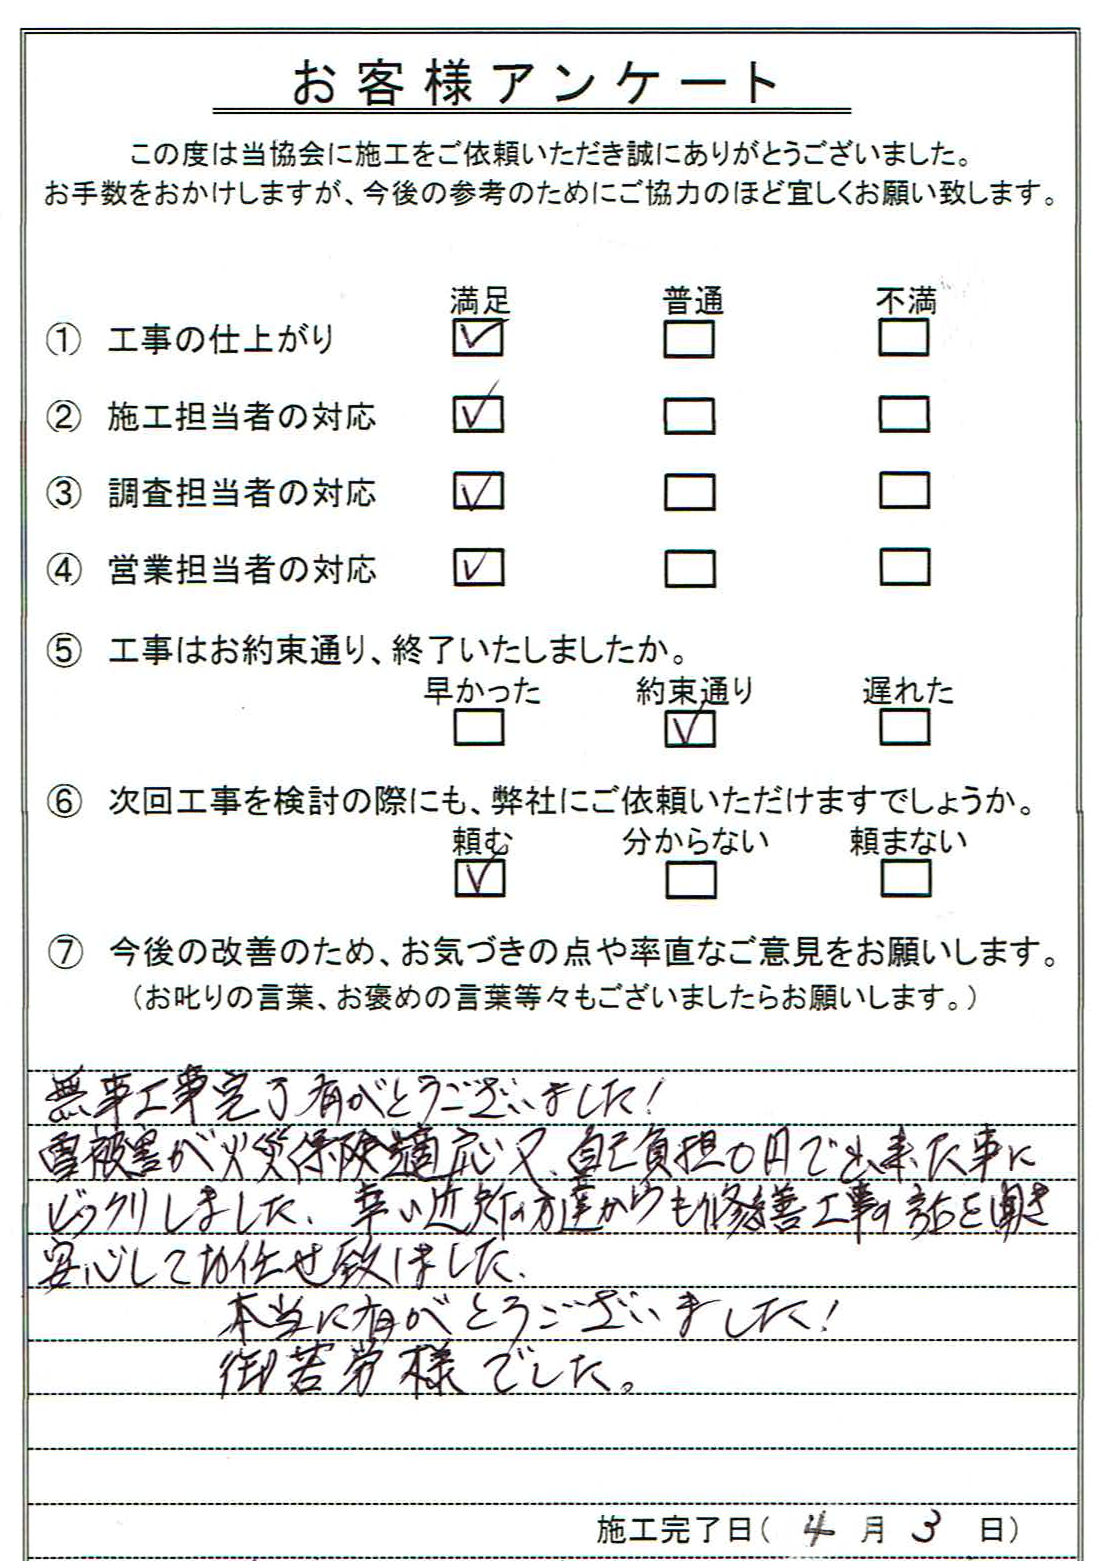 お客様アンケート
この度は当協会に施工をご依頼いただき誠にありがとうございました。
お手数をおかけしますが、今後の参考のためにご協力のほど宜しくお願い致します。
満足 普通 不満
① 工事の仕上がり
② 施工担当者の対応
③ 調査担当者の対応
④ 営業担当者の対応
⑤ 工事はお約束通り、終了いたしましたか。
早かった 約束通り 遅れた
⑥ 次回工事を検討の際にも、弊社にご依頼いただけますでしょうか。
頼む 分からない 頼まない
⑦ 今後の改善のため、お気づきの点や率直なご意見をお願いします。
（お叱りの言葉、お褒めの言葉等々もございましたらお願いします。）
無事工事完了有がとうございました！
雪被害が火災保険適応又、自己負担0円で出来た事に
ビックリしました、幸い近所の方達からも修善工事の話を聞き
安心してお任せ致しました、
本当に有がとうございました！
御苦労様でした。
施工完了日（ 4 月 3 日）